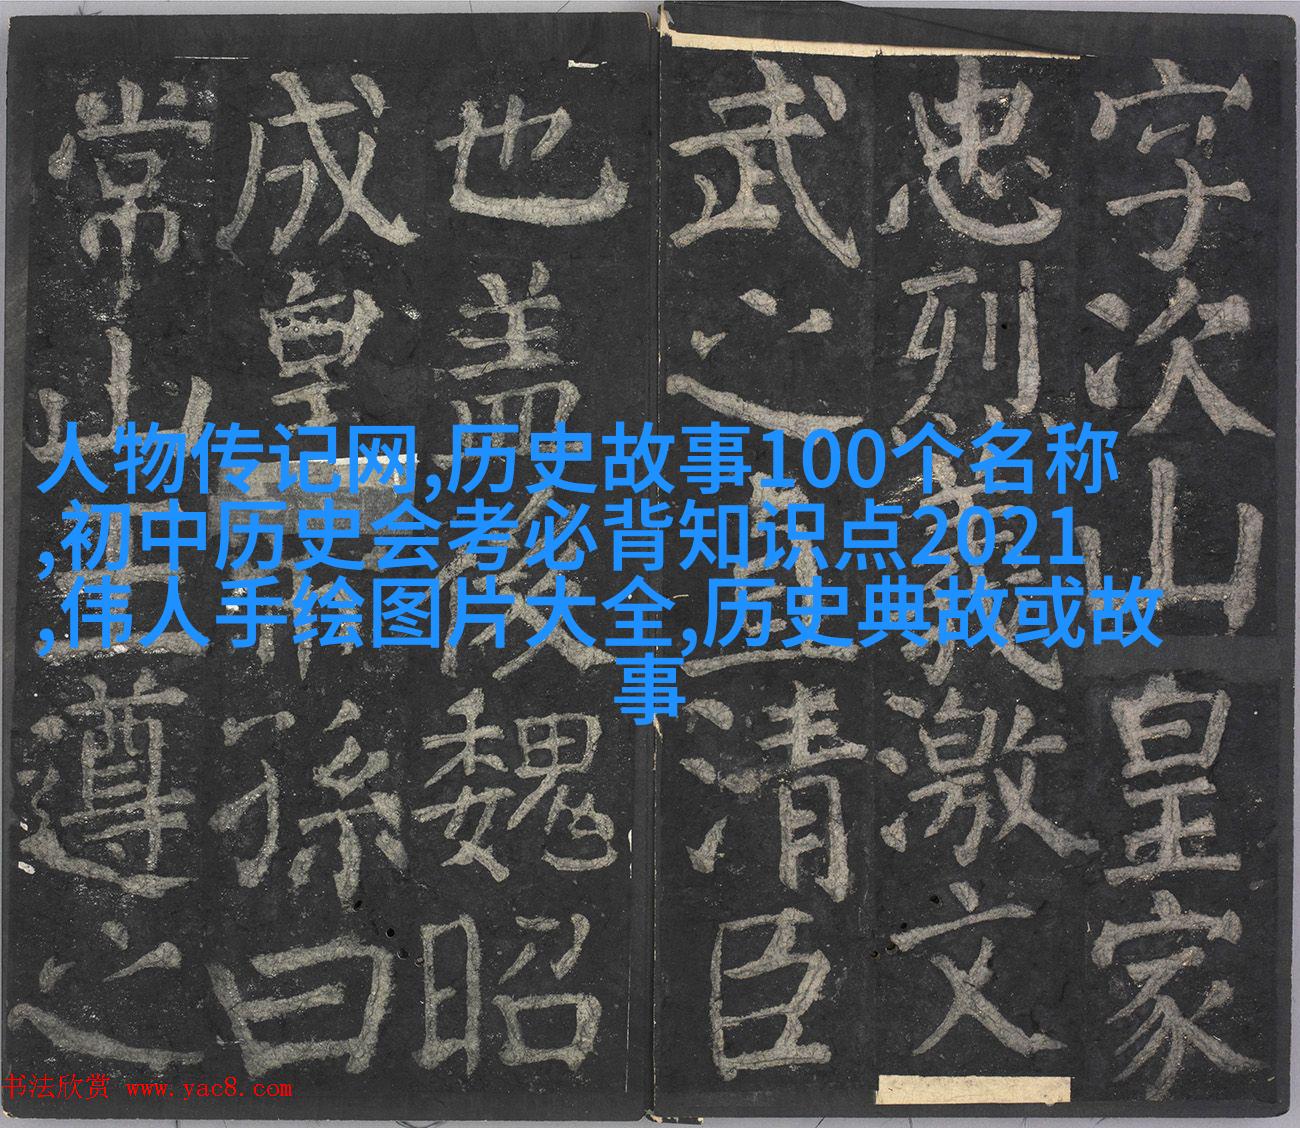 字次山皇家
忠烈義激文
武之直清臣
也盖後魏昭
成皇帝孫曰
常山王遵之
人物传记网,历史故事100个名称
,初中历史会考必背知识点2021
,伟人手绘图片大全,历史典故或故
事
书法欣赏 www.yac8.com